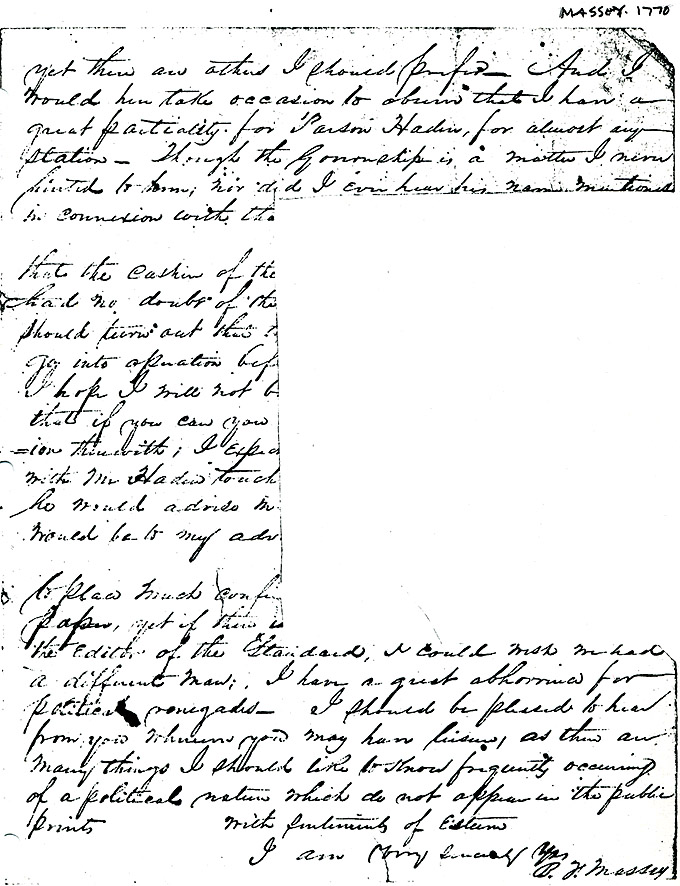 MASSEY. 1770
yet there are others I should prefer— And I
would here take occasion to observe that I have a
great partiality for Parson Haden, for almost any
station— Though the Govrorship is a matter I never
hinted to him; nor did I ever hear his name mentioned
in connexion with tha
that the Cashier of the
had no doubt of the
should turn out that t
go into operation bef
I hope I will not b
that if you can you
=ion therewith; I expec
with Mr Haden touch
he would advise m
would be to my adv
to place much confi
paper, yet if there is
the Editor of the Standard, I could wish we had
a different man; I have a great abhorrence for
political renegades— I should be pleased to hear
from you whenever you may have leisure, as there are
many things I should like to know frequently occuring
of a political nature which do not appear in the public
prints with sentiments of Esteem
I am very sincerely Yrs
B. F. Massey